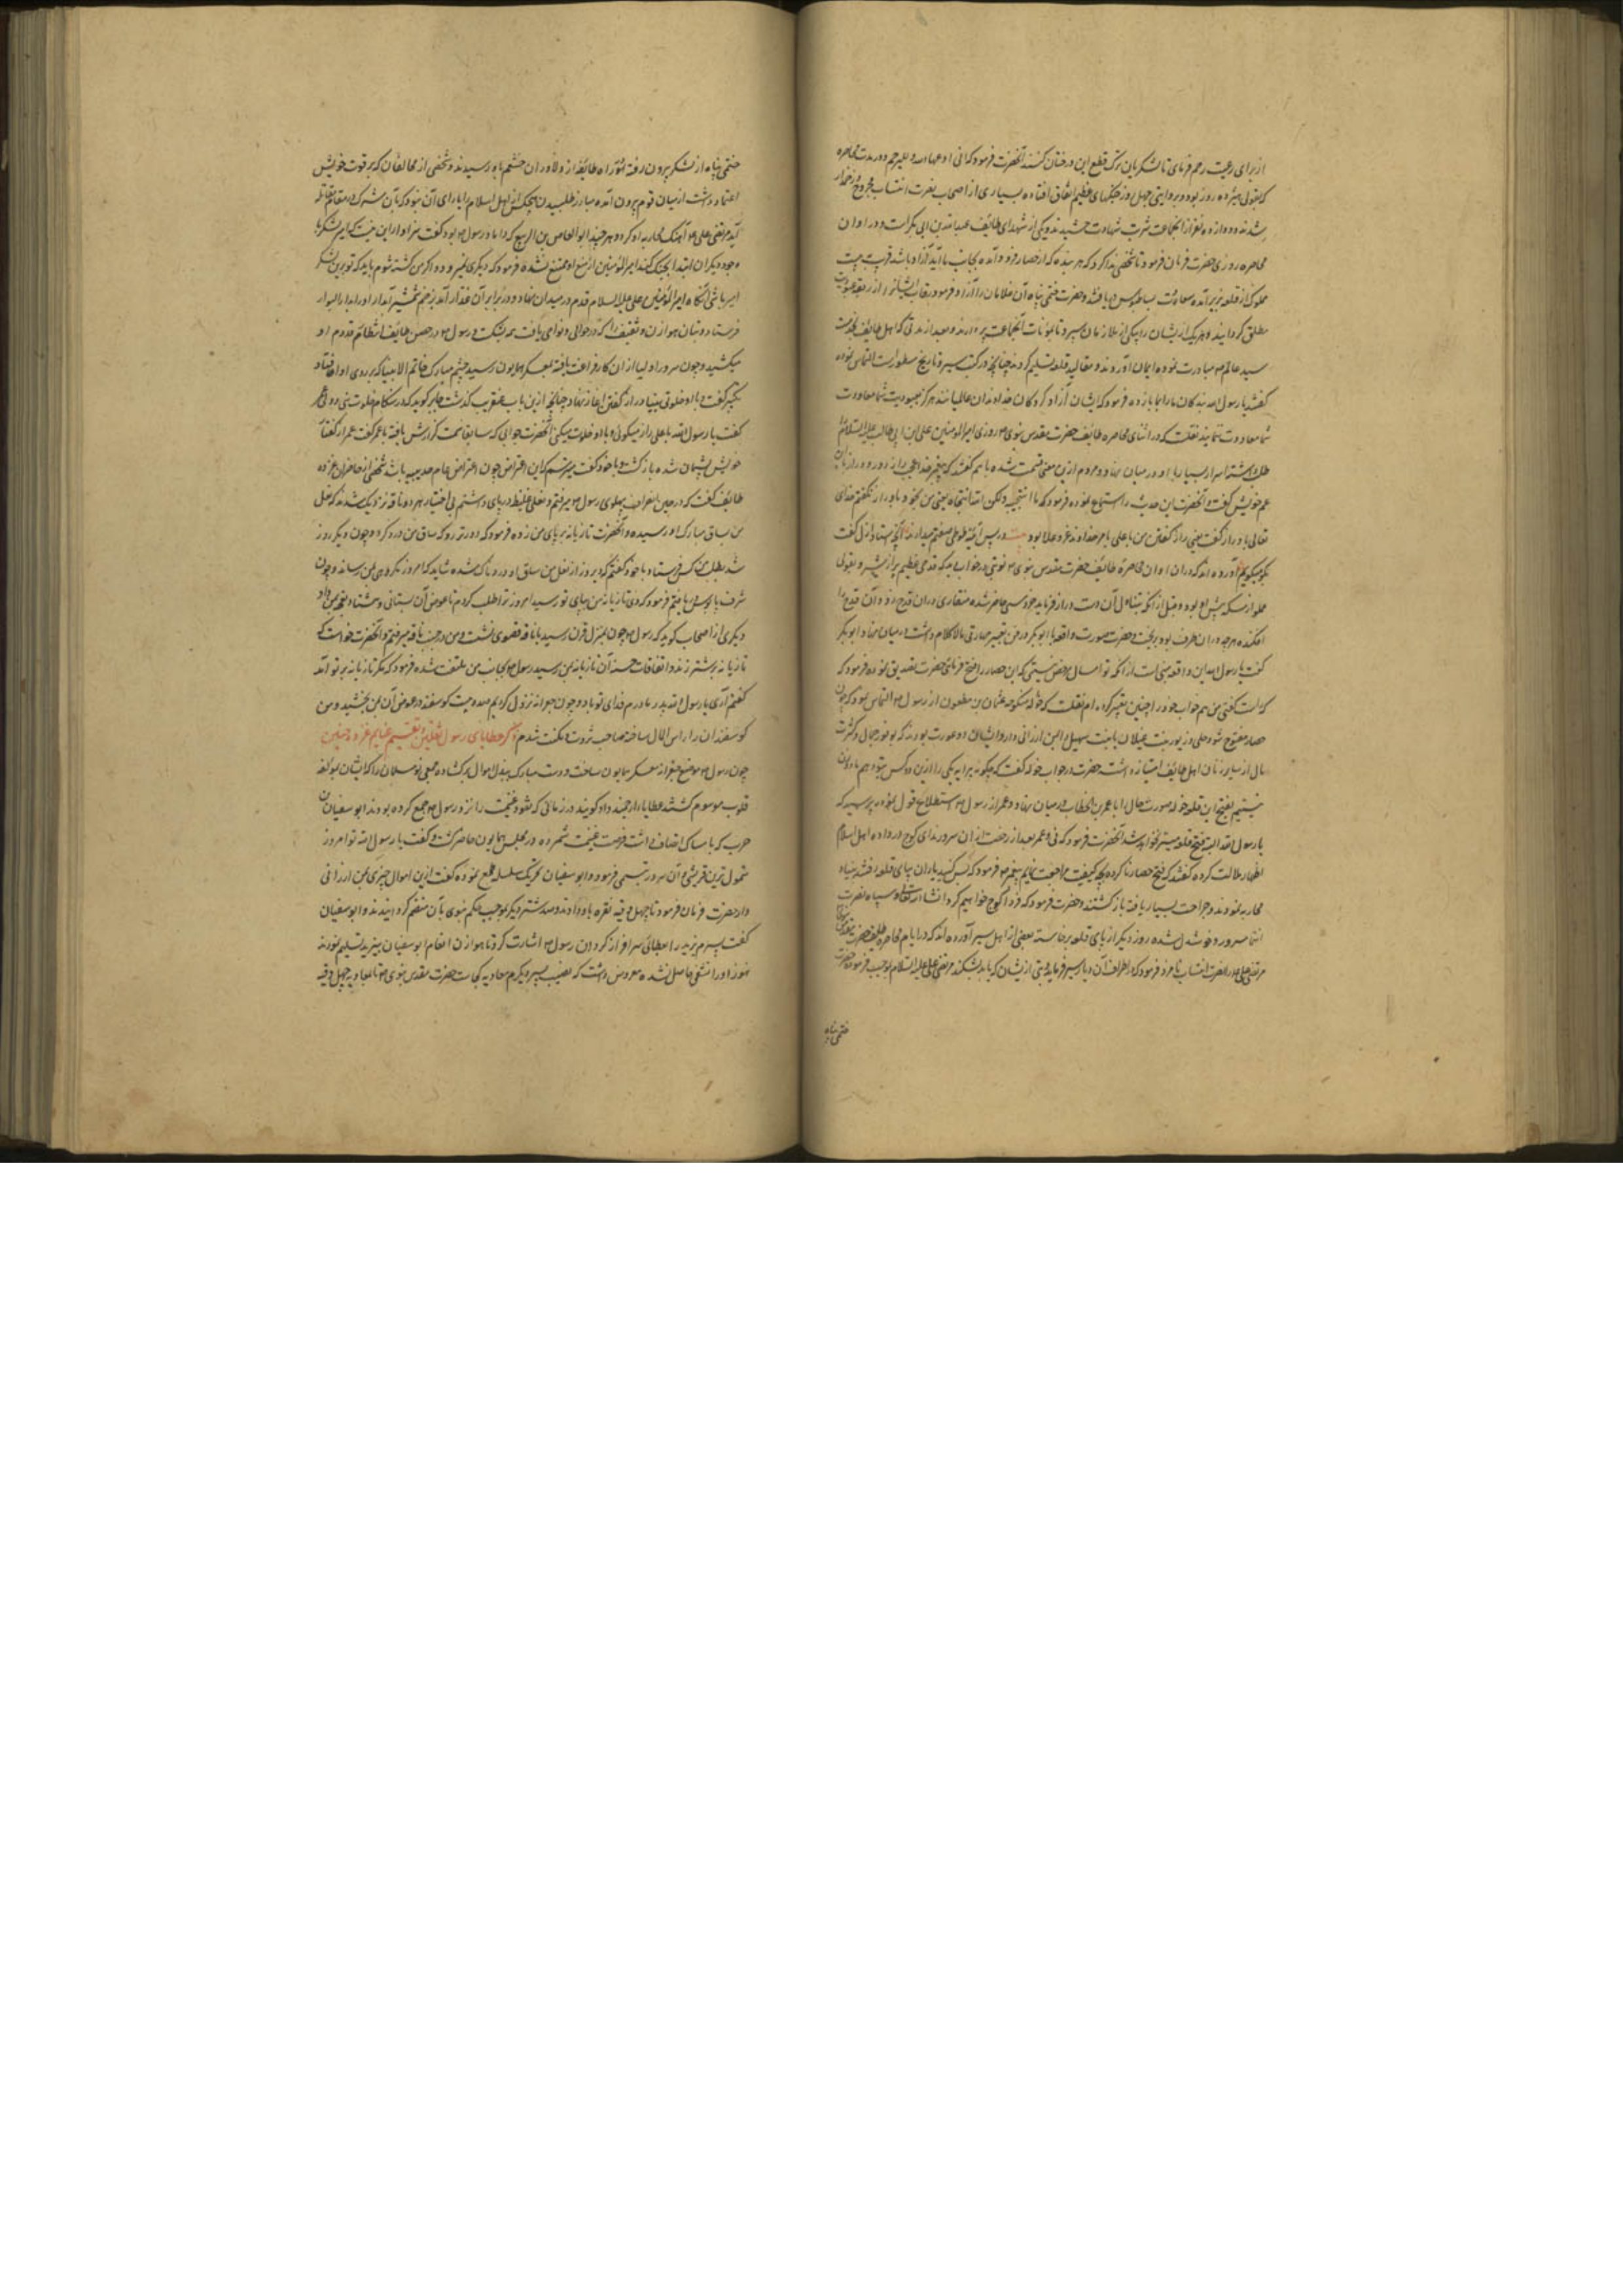 از برای رعیت رحم فرمای تا لشکریان ترک قطع این درختان کنند آنحضرت فرمود که انی ادعها لله و للرحم و در مدت محاصره
که بقولی هژده روز بود و بروایتی چهل روز جنکهای عظیم اتفاق افتاده بسیاری از اصحاب نصرت انتساب مجروح و زخمدار
شدند و دوازده نفر از انجماعت شربت شهادت چشیدند و یکی از شهدای طائف عبدالله بن ابی بکر است و در اوان
محاصره روزی حضرت فرمان فرمود تا شخصی ندا کرد که هر بنده که از حصار فرود آمده بجانب ما آید آزاد باشد قریب بیست
مملوک از قلعه بزیر آمده سعادت بساطبوس دریافتند و حضرت ختمی پناه آن غلامان را آزاد فرمود
مطلق کردانید و هر یک از ایشان را بیکی از ملازمان سپرد تا مؤنات آنجماعت بردارند و بعد از مدتی که اهل طائف بخدمت
سید عالم مبادرت نموده ایمان آوردند و مقالید قلعه تسلیم کردند چنانچه در کتب سیر و تاریخ مسطور است التماس نموده
کفتند یا رسول الله بندکان ما را بما باز ده فرمود که ایشان آزاد کردکان خداوندان عالمیانند هرکز بعبودیت شما معاودت
شما معاودت ننمایند نقلست که در اثنای محاصره طائف حضرت مقدس نبوی روزی امیر المؤمنین علی ابن ابی طالب علیه السلام
طلب داشته اسرار بسیار با او در میان نهاد و مردم ازین معنی باهم کفتند که پیغمبر خدا عجب راز دور و دراز با ابن
عم خویش کفت آنحضرت این حدیث را استماع نموده فرمود که ما انتجیته ولکن الله انتجاه یعنی من بخود با او راز نکفتم خدای
تعالی با او راز کفت یعنی راز کفتن من با علی بامر خداوند عز و علا بود بیت در پس آینه طوطی صفتم میدارند آنچه استاد ازل کفت
بکو میکویم آورده اند که در آن اوان محاصره طائف حضرت مقدس نبوی نوبتی در خواب دید که قدحی عظیم پر از شیر و بقولی
مملو از مسکه پیش او بود و قبل از انکه بتناول آن دست دراز فرماید خروسی حاضر شده منقاری در آن قدح زد و آن قدح را
افکنده هرچه در آن ظرف بود بریخت و حضرت صورت واقعه با ابوبکر که در فن تعبیر مهارتی مالا کلام داشت در میان نهاد ابوبکر
کفت یا رسول الله این واقعه مبنی است از انکه تو امسال این حصار را فتح فرمائی حضرت تصدیق نموده فرمود که
راست کفتی من هم خواب خود را چنین تعبیر کرده ام نقلست که خوله منکوحه عثمان بن مظعون از رسول التماس نمود که چون
حصار مفتوح شود حلی و زیور بنت غیلان یا بنت سهیل را بمن ارزانی دارد و ایشان دو عورت بودند که بوفور جمال و کثرت
مال از سایر زنان اهل طائف امتیاز داشتند حضرت در جواب خوله کفت که چکونه پیرایه یکی را ازین دو کس بتو دهم ماذون
نیستیم بفتح این قلعه خوله صورت حال را با عمر بن الخطاب در میان نهاد و عمر از رسول استطلاع قول نموده پرسید که
یا رسول الله البته فتح قلعه میسر نخواهد شد آنحضرت فرمود که نی و عمر بعد از رخصت از آن سرور ندای کوچ در داده اهل اسلام
اظهار ملالت کرده کفتند که فتح حصار ناکرده بچه کیفیت مراجعت نمائیم پیغمبر فرمود که پس کنید یاران بپای قلعه رفتند بنیاد
محاربه نمودند و جراحت بسیار یافته بازکشتند و حضرت فرمود که فردا کوچ خواهیم کرد انشاء الله تعالی و سپاه نصرت
انتما مسرور و خوشدل شده روز دیکر از پای قلعه برخاستند بعضی از اهل سیر آورده اند که در ایام محاصره طائف حضرت مقدس نبوی
مرتضی علی را نصرت انتساب نامزد فرمود که در اطراف آن دیار سیر فرماید و بتی از ایشان که یابد بشکند مرتضی علی علیه السلام بموجب فرموده حضرت
ختمی پناه
ختمی پناه از لشکر بیرون رفته در اثنای راه طائفه از دلاوران خثعم باو رسیدند و شخصی از مخالفان که بر قوت خویش
اعتماد داشت از میان قوم بیرون آمده مبارز طلبید و هیچکس از اهل اسلام را یارای آن نبود که با آن مشرک در مقام مقاتله
آید مرتضی علی آهنک محاربه او کرد و هر چند ابوالعاص بن الربیع که داماد رسول بود کفت سزاوار این نیست که امیر لشکر با
وجود دیکران ابتدا بجنک کند امیر المؤمنین از منع او ممتنع نشده فرمود که دیکری نمیرود و اکر من کشته شوم باید که تو برین لشکر
امیر باشی آنکاه امیر المؤمنین علی علیه السلام قدم در میدان نهاد و در برابر آن غدار آمد بزخم شمشیر آبدار او را بدار البوار
فرستاد و بتان هوازن و ثقیف را که در حوالی و نواحی یافت همه بشکست و رسول در حصن طایف انتظار مقدم او
میکشید و چون سرور اولیا از آن کار فراغت یافته بمعسکر همایون رسید چشم مبارک خاتم الانبیا که بر روی او افتاد
تکبیر کفت و با او خلوتی بنیاد راز کفتن آغاز نهاد چنانچه ازین باب عنقریب کذشت جابر کوید که در هنکام خلوت نبی و ولی عمر
کفت یا رسول الله با علی راز میکوئی و با او خلوت میکنی آنحضرت جوابی که سابقا سمت کزارش یافته با عمر کفت عمر از کفتار
خویش پشیمان شده بازکشت و با خود کفت میترسم که این اعتراض چون اعتراض عام حدیبیه باشد شخصی از حاضران غزوه
طائف کفت که در حین انصراف پهلوی رسول میرفتم و نعلی غلیظ در پای داشتم بی اختیار هر دو ناقه نزدیک شدند که نعل
من بساق مبارک او رسیده و آنحضرت تازیانه بر پای من زده فرمود که دورتر رو که ساق من درد کرد و چون دیکر روز
شد بطلب من کس فرستاد با خود کفتم که دیروز از نعل من ساق او دردناک شده شاید که امروز مکروهی بمن رساند و چون
شرف پابوس دریافتم فرمود که دی تازیانه من بپای تو رسید امروز ترا طلب کردم تا عوض آن بستانی و هشتاد نعجه بمن داد
دیکری از اصحاب کوید که رسول چون بمنزل قرن رسید بناقه قصوی نشست و من در جنب ناقه میرفتم و آنحضرت خواست که
تازیانه بر شتر زند و اتفاقات حسنه آن تازیانه بمن رسید رسول بجانب من ملتفت شده فرمود که مکر تازیانه بر تو آمد
کفتم آری یا رسول الله پدر و مادرم فدای تو باد و چون بجعرانه نزول کردیم صد و بیست کوسفند در عوض آن بمن بخشید و من
کوسفندان را راس المال ساخته صاحب ثروت و مکنت شدم ذکر عطایای رسول الثقلین و تقسیم غنایم غزوه حنین
چون رسول موضع جعرانه معسکر همایون ساخت و دست مبارک ببذل اموال برکشاده جمعی نومسلمان را که ایشان بمولفه
قلوب موسوم کشتند عطایا ارجمند داد کویند در زمانی که نقود غنیمت را نزد رسول جمع کرده بودند ابو سفیان بن
حرب که بامساک اتصاف داشت فرصت غنیمت شمرده در مجلس همایون حاضر کشت و کفت یا رسول الله تو امروز
متمول ترین قریشی آن سرور تبسمی فرمود و ابو سفیان تحریک سلسله طمع نموده کفت ازین اموال چیزی بمن ارزانی
دار حضرت فرمان فرمود تا چهل وقیه نقره باو دادند و صد شتر دیکر بموجب حکم نبوی بآن منضم کردانیدند و ابو سفیان
کفت پسرم یزید را بعطائی سرافراز کردان رسول اشارت کرد تا هم وزن انعام ابو سفیان بیزید تسلیم نمودند
هنوز او را تشفی حاصل نشده معروض داشت که نصیب پسر دیکرم معاویه کجاست حضرت مقدس نبوی تا بمعاویه چهل وقیه